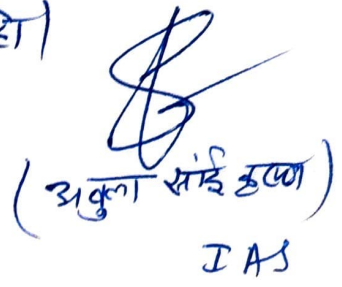 हो।
(अबुला सांई कृष्णा)
IAS